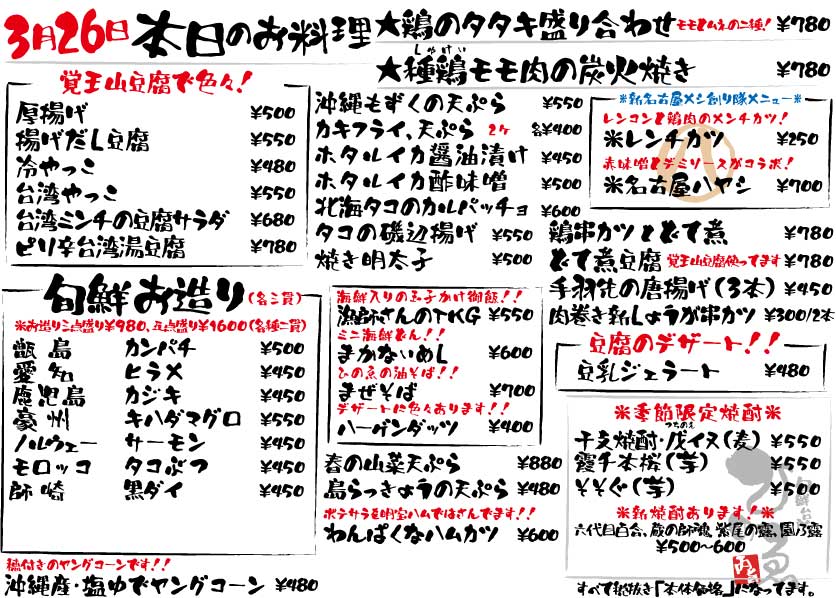 3月26日 本日のお料理
★鶏のタタキ盛り合わせ モモとムネの二種! ¥780
しゃけい
★種鶏モモ肉の炭火焼き ¥780
覚王山豆腐で色々!
厚揚げ ¥500
揚げだし豆腐 ¥550
冷やっこ ¥480
台湾やっこ ¥550
台湾ミンチの豆腐サラダ ¥680
ピリ辛台湾湯豆腐 ¥780
沖縄もずくの天ぷら ¥550
カキフライ、天ぷら 2ケ 各¥400
ホタルイカ醤油漬け ¥450
ホタルイカ酢味噌 ¥500
北海タコのカルパッチョ ¥600
タコの磯辺揚げ ¥550
焼き明太子 ¥500
※新名古屋メシ創り隊メニュー※
レンコンと鶏肉のメンチカツ!
※レンチカツ ¥250
赤味噌とデミソースがコラボ!
※名古屋ハヤシ ¥700
鶏串カツとどて煮 ¥780
どて煮豆腐 覚王山豆腐使ってます ¥780
手羽先の唐揚げ(3本) ¥450
肉巻き新しょうが串カツ ¥300/2本
旬鮮お造り(各三貫)
※お造り三点盛り¥980、五点盛り¥1600(各種二貫)
甑島 カンパチ ¥500
愛知 ヒラメ ¥450
鹿児島 カジキ ¥450
豪州 キハダマグロ ¥550
ノルウェー サーモン ¥450
モロッコ タコぶつ ¥450
師崎 黒ダイ ¥450
穂付きのヤングコーンです!!
沖縄産・塩ゆでヤングコーン ¥480
海鮮入りの玉子かけ御飯!!
漁師さんのTKG ¥550
ミニ海鮮どん!!
まかないめし ¥600
ひの魚の油そば!!
まぜそば ¥700
デザートに色々あります!!
ハーゲンダッツ ¥400
春の山菜天ぷら ¥880
島らっきょうの天ぷら ¥480
ポテサラを明宝ハムではさんでます!!
わんぱくなハムカツ ¥600
豆腐のデザート!!
豆乳ジェラート ¥480
※季節限定焼酎※
つちのえ
干支焼酎・戊イヌ(麦) ¥550
霞千本桜(芋) ¥550
そそぐ(芋) ¥500
※新焼酎あります!※
六代目百合、蔵の師魂、紫尾の露、園乃露
¥500~600
すべて税抜き「本体価格」になってます。